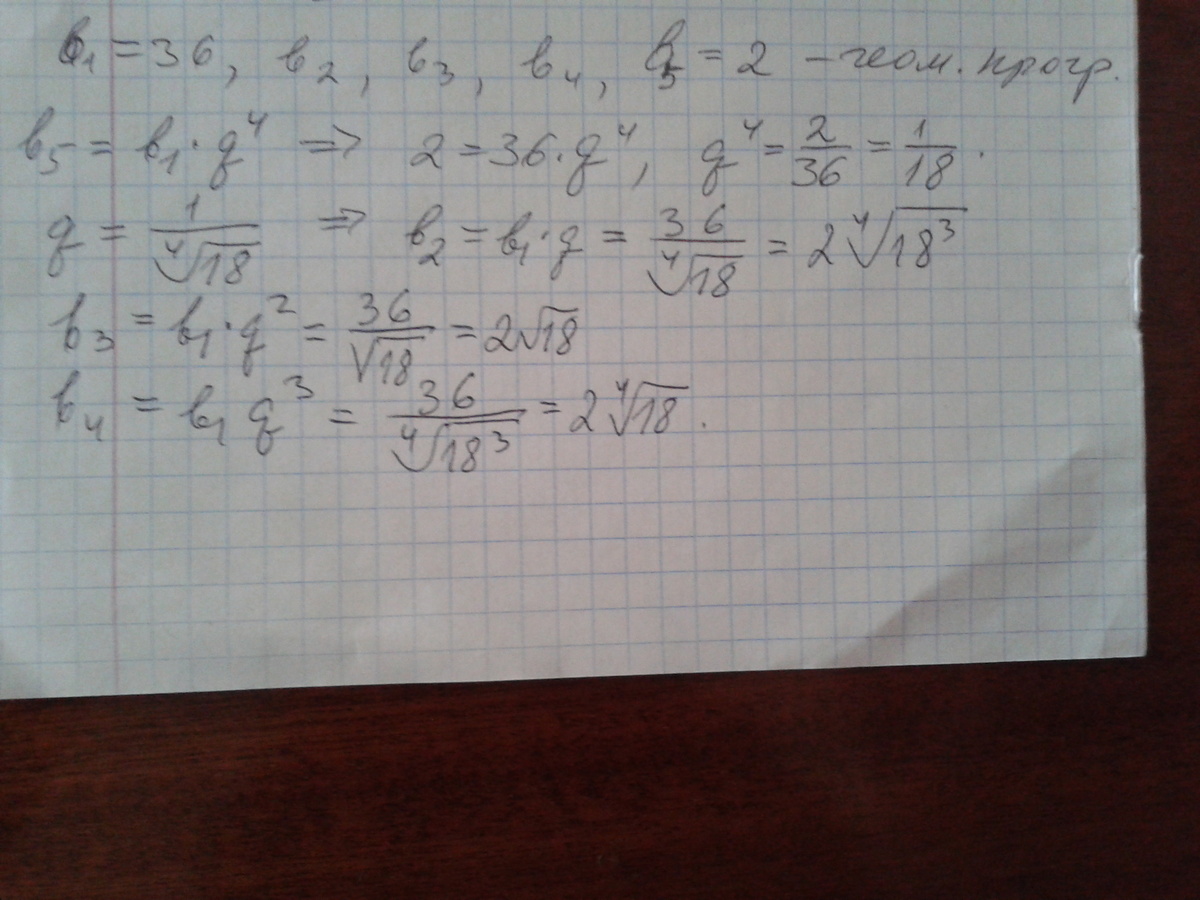 b₁ = 36, b₂, b₃, b₄, b₅ = 2 – геом. прогр.
b₅ = b₁·q⁴ => 2 = 36·q⁴, q⁴ = 2/36 = 1/18.
q = 1/⁴√18 => b₂ = b₁·q = 36/⁴√18 = 2⁴√18³
b₃ = b₁·q² = 36/√18 = 2√18
b₄ = b₁q³ = 36/⁴√18³ = 2⁴√18.